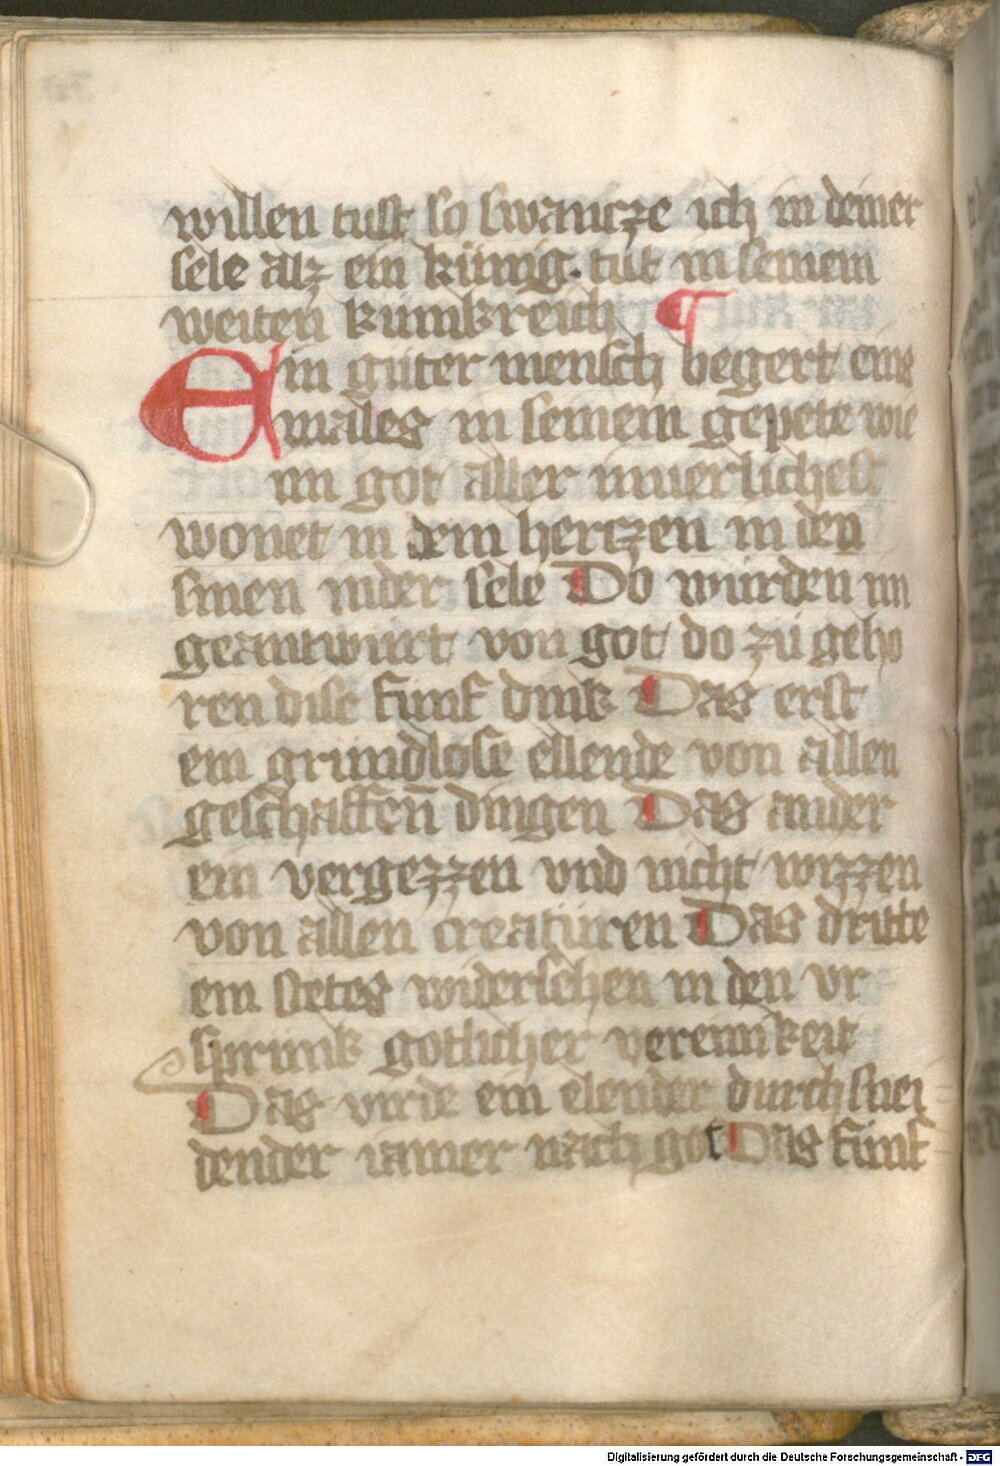 willen tust so swancze ich in deiner
sele alz ein künig. tüt in seinem
weiten kunikreich ¶
Ein güter mensch begert eins
males in seinem gepete wie
im got aller innerlichest
wonet in dem hertzen in den
sinen in der sele Do würden im
geantwurt von got do zü geho
ren dise funf dink Das erst
ein grundlose ellende von allen
geschaffen̄ dingen Das ander
ein vergezzen vnd nicht wizzen
von allen creatüren Das dritte
ein stetes widersehen in den vr
sprunk gotlicher vereinikeit
Das virde ein elender durch snei
dender iamer nach got Das funf
Digitalisierung gefördert durch die Deutsche Forschungsgemeinschaft - DFG